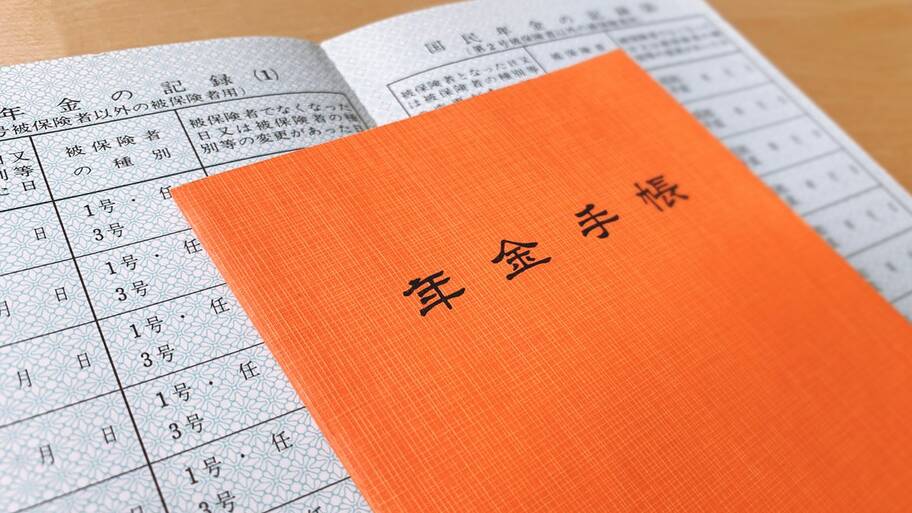 年金の記録(1)
号被保険者以外の被保険者用)
日又
別等
た日
被保険者
の種別
被保険者でなくなった
日又は被保険者の種
別等の変更があった
日
1号・任
3号
1号・任
3号
月 日
1号・任
3号
月 日
1号・任
3号
月 日
1号・任
3号
国民年金の記録
(第2号被保険者以外の被保険者用
被保険者となった日又
は被保険者の種別等
被保険者
年金手帳